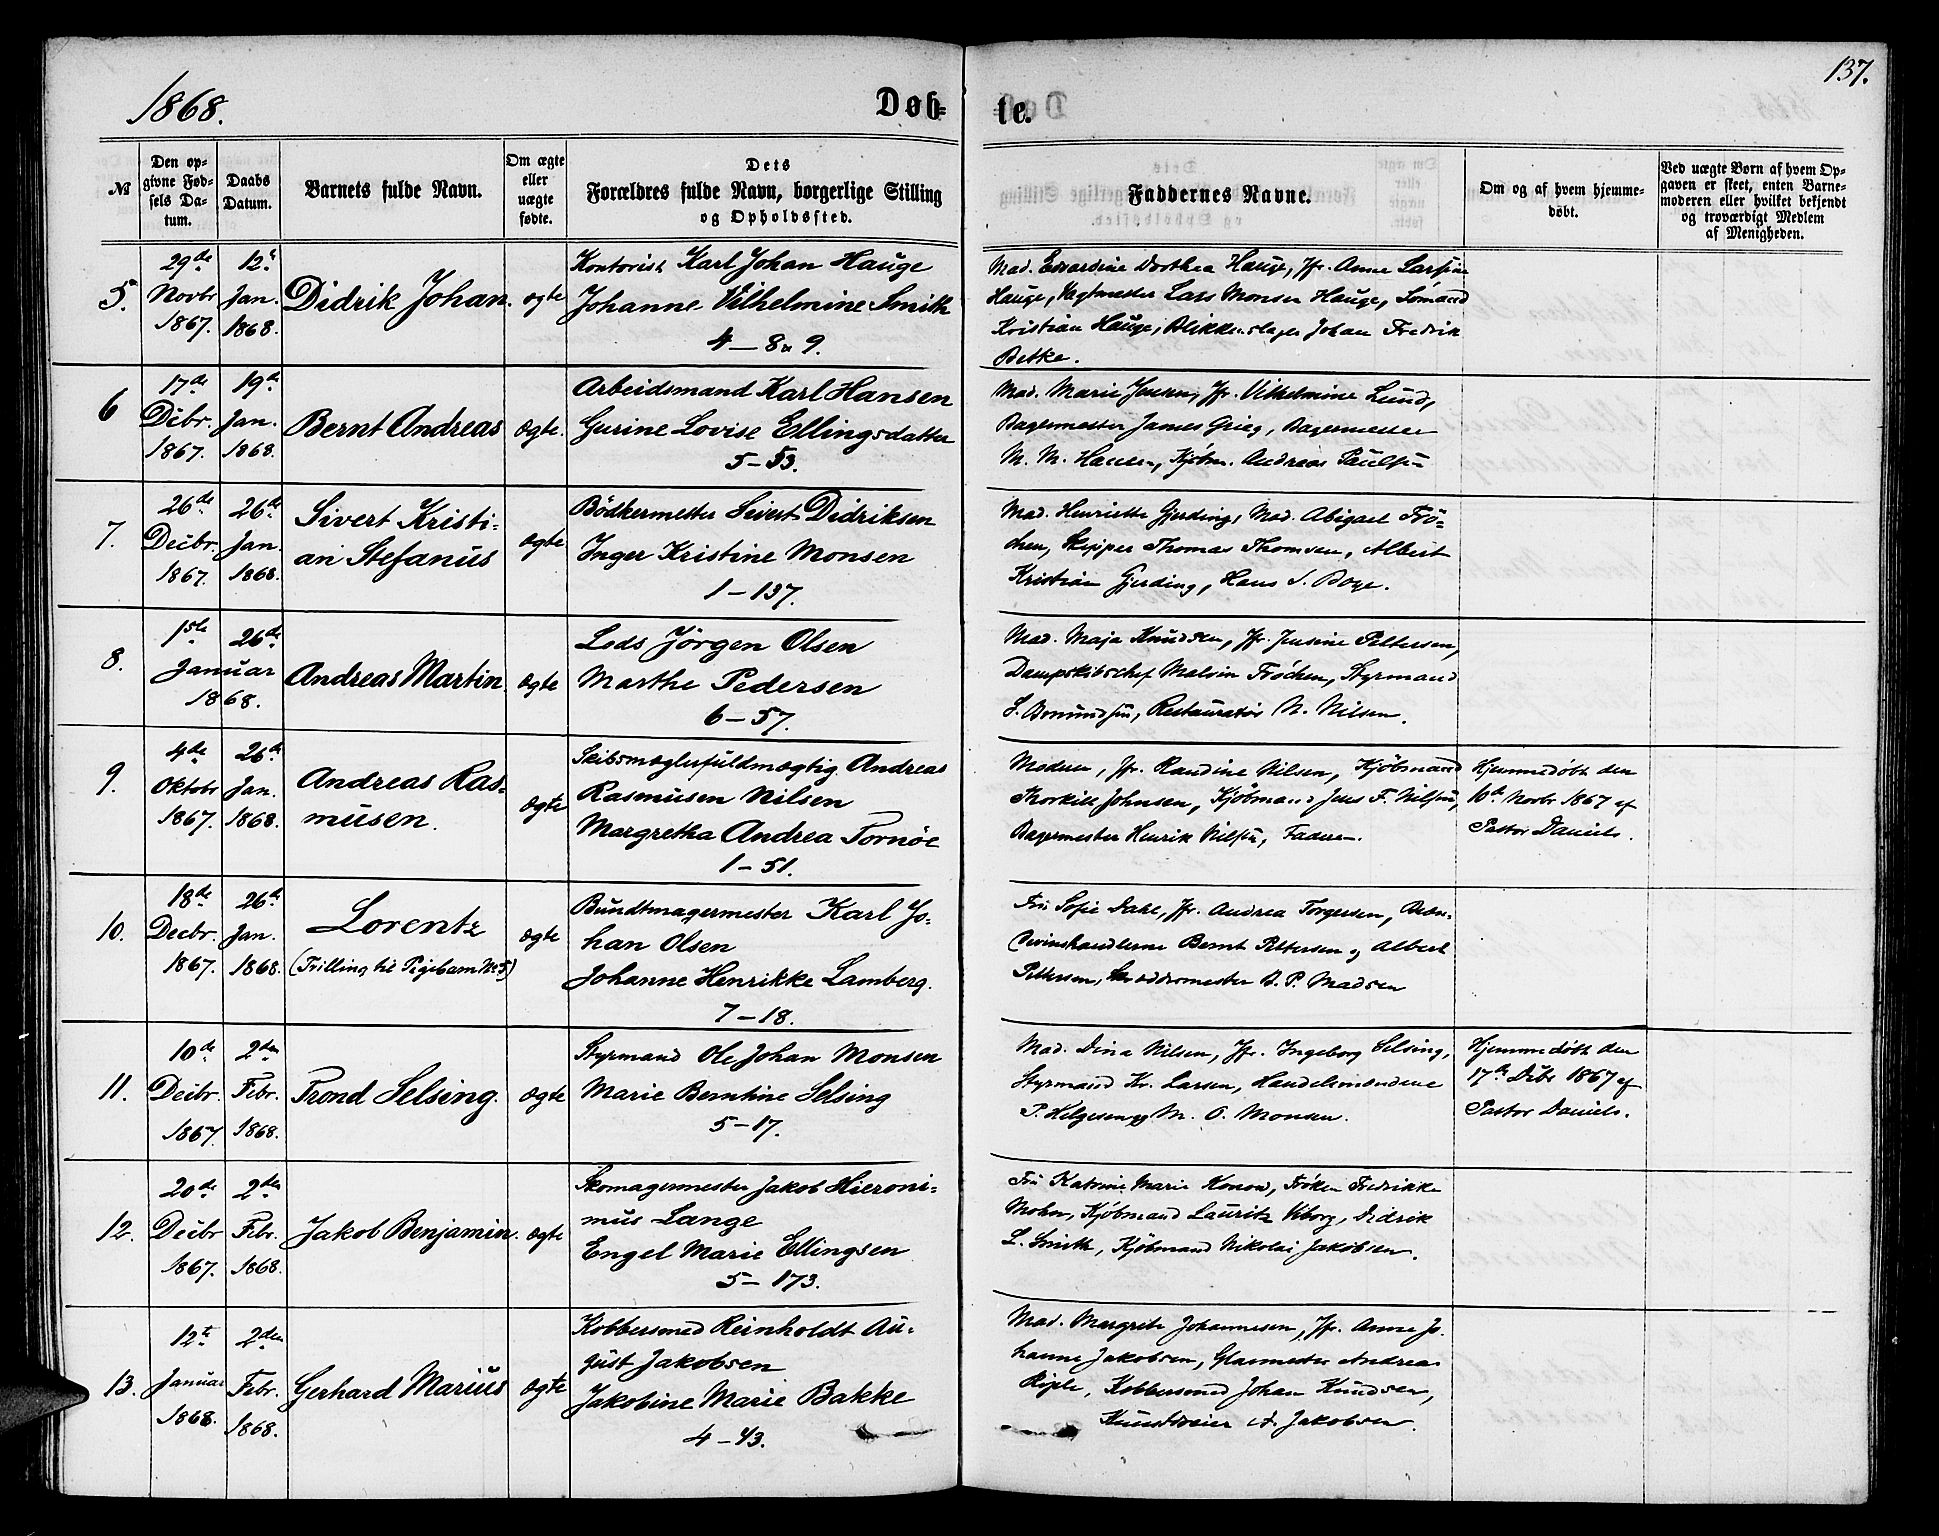 1868.
Døb-
te.
137.
№
Den op-
givne Fød-
sels Da-
tum.
Daabs
Datum.
Barnets fulde Navn.
Om ægte
eller
uægte
fødte.
Dets
Forældres fulde Navn, borgerlige Stilling
og Opholdssted.
Faddernes Navne.
Om og af hvem hjemme-
døbt.
Ved uægte Børn af hvem Op-
gaven er skeet, enten Barne-
moderen eller hvilket bekjendt
og troværdigt Medlem
af Menigheden.
5.
29de
Novbr
1867.
12te
Jan.
1868.
Didrik Johan.
ægte
Kontorist Karl Johan Hauge
Johanne Vilhelmine Smith
4 – 8 & 9.
Mad. Edvardine Dorthea Hauge, Jfr. Anne Larsine
Hauge, Vægtmester Lars Monsen Hauge, Sømand
Kristian Hauge, Blikkenslager Johan Fredrik
Betke.
6
17de
Dcbr.
1867.
19de
Jan.
1868.
Bernt Andreas
ægte.
Arbeidsmand Karl Hansen
Gurine Lovise Ellingsdatter
5–53.
Mad. Marie Jensen, Jfr. Vilhelmine Lund,
Bagermester James Grieg, Bagermester
M. M. Hansen, Kjøbm. Andreas Paulsen
7.
26de
Decbr.
1867.
26de
Jan.
1868.
Sivert Kristi-
an Stefanus
ægte
Bödkermester Sivert Didriksen
Inger Kristine Monsen
1–137.
Mad. Henriette Gjerding, Mad. Abigael Frö-
chen, Skipper Thomas Thomsen, Albert
Kristian Gjerding, Hans S. Boge.
8.
1ste
Januar
1868.
26de
Andreas Martin.
ægte
Lods Jörgen Olsen
Marthe Pedersen
6–57.
Mad. Maja Knudsen, Jfr. Jensine Pettersen,
Dampskibschef Malvin Frøchen, Styrmand
S. Bomundsen, Restauratör N. Nilsen.
9.
4de
Oktobr
1867.
26de
Jan.
1868.
Andreas Ras-
musen.
ægte
Skibsmæglerfuldmægtig Andreas
Rasmusen Nilsen
Margretha Andrea Tornöe
1–51.
Moderen, Jfr. Randine Nilsen, Kjöbmand
Thorkild Johnsen, Kjöbmand Jens F. Nilsen,
Bagermester Henrik Nilsen, Faderen.
Hjemmedøbt den
10de Novbr 1867 af
Pastor Daniels.
10.
18de
Decbr.
1867.
26de
Jan.
1868.
Lorentz
(Trilling til Pigebarn № 5)
ægte
Bundtmagermester Karl Jo-
han Olsen
Johanne Henrikke Lamberg.
7–18.
Fru Sofie Dahl, Jfr. Andrea Torgersen, Bræn-
devinshandlerne Bernt Pettersen og Albert
Pettersen, Skræddermester B. P. Madsen
11.
10de
Decbr.
1867.
2den
Febr.
1868.
Trond Selsing.
ægte
Styrmand Ole Johan Monsen
Marie Berntine Selsing
5–17.
Mad. Dina Nilsen, Jfr. Ingeborg Selsing,
Styrmand Kr. Larsen, Handelsmændene
P. Helgesen og M. O. Monsen.
Hjemmedøbt den
17de Dcbr 1867 af
Pastor Daniels.
12.
20de
Decbr
1867.
2den
Febr.
1868.
Jakob Benjamin.
ægte
Skomagermester Jakob Hieroni-
mus Lange
Engel Marie Ellingsen
5–173.
Fru Katrine Marie Konow, Frøken Fredrikke
Mohn, Kjöbmand Lauritz Viborg, Didrik
L. Smith, Kjöbmand Nikolai Jakobsen.
13.
12te
Januar
1868.
2den
Febr.
1868.
Gerhard Marius
ægte
Kobbersmed Reinholdt Au-
gust Jakobsen
Jakobine Marie Bakke
4–43.
Mad. Margrete Johannesen, Jfr. Anne Jo-
hanne Jakobsen, Glasmester Andreas
Riple, Kobbersmed Johan Knudsen,
Kunstdreier A. Jakobsen.